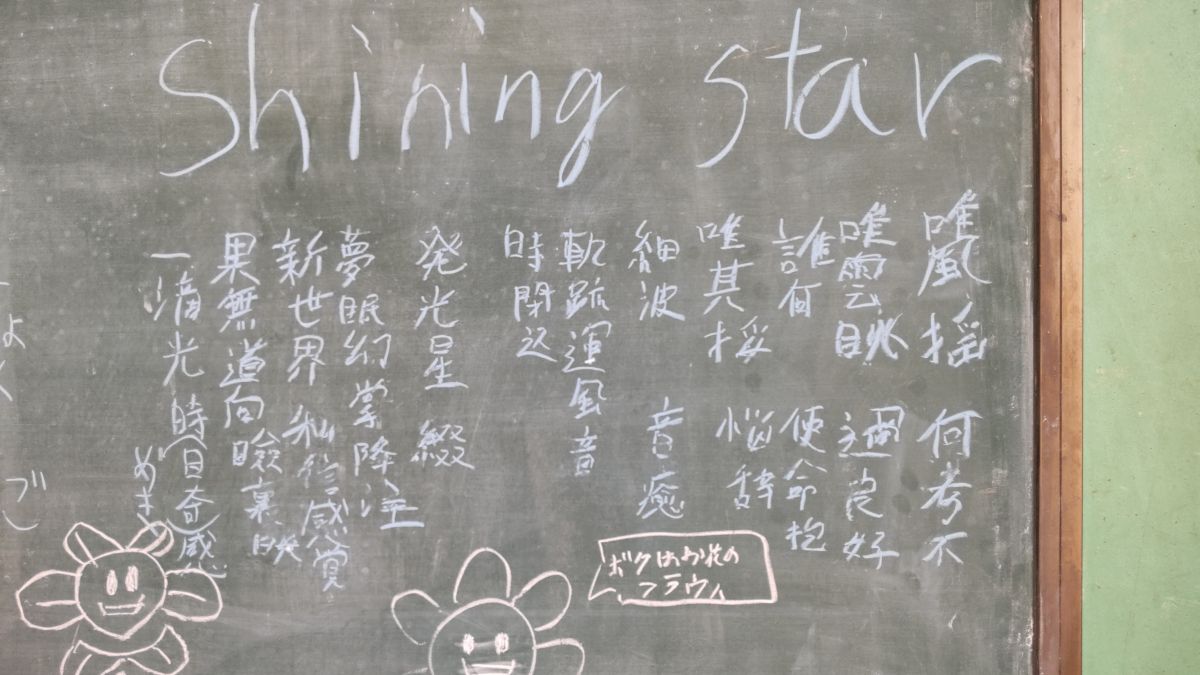 shining star
唯風揺 何考不
唯雲眺 過良好
誰何 使命抱
唯其 悩辞
細波 音癒
軌跡運風音
時閉込
発光星 綴
夢眠幻掌降注
新世界 私 感覚
果無道向瞼裏映
一滴光 時(日奇)感
めき
ボクはお花の
フラウィ